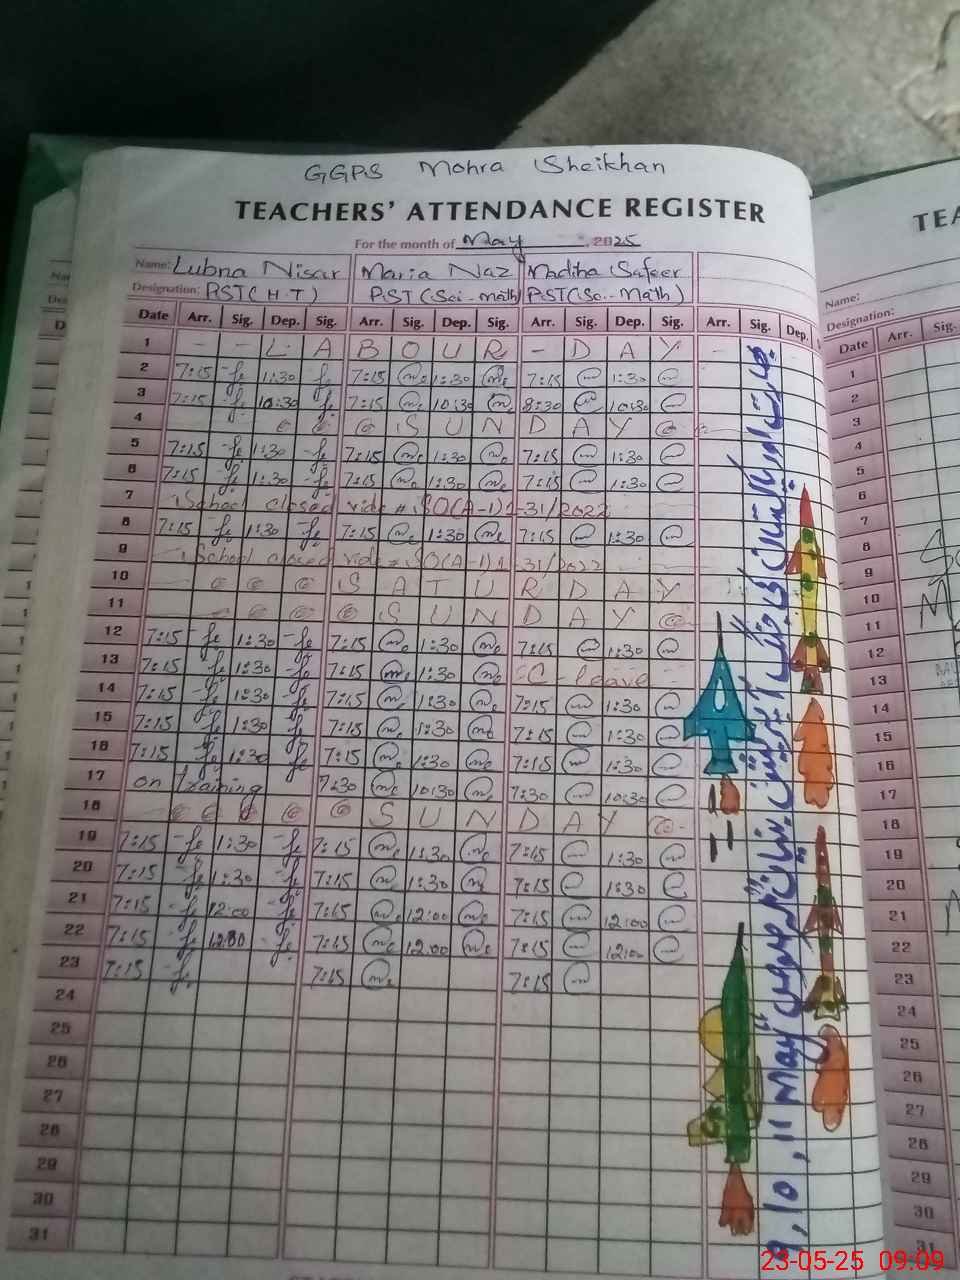 GGPS Mohra Sheikhan
TEACHERS' ATTENDANCE REGISTER
For the month of May, 2025
Name: Lubna Nisar Maria Naz Madiha Safeer
Designation: PST(H.T) PST(Sci-Math) PST(Sci-Math)
Date Arr. Sig. Dep. Sig. Arr. Sig. Dep. Sig. Arr. Sig. Dep. Sig. Arr. Sig. Dep.
1 - - L A B O U R - D A Y -
2 7:15 1:30 7:15 1:30 7:15 1:30
3 7:15 10:30 7:15 10:30 8:30 10:30
4 S U N D A Y
5 7:15 1:30 7:15 1:30 7:15 1:30
6 7:15 1:30 7:15 1:30 7:15 1:30
7 School closed vide # SO(A-1)1-31/2022
8 7:15 1:30 7:15 1:30 7:15 1:30
9 School closed vide # SO(A-1)1-31/2022
10 S A T U R D A Y
11 S U N D A Y
12 7:15 1:30 7:15 1:30 7:15 1:30
13 7:15 1:30 7:15 1:30 C-leave
14 7:15 1:30 7:15 1:30 7:15 1:30
15 7:15 1:30 7:15 1:30 7:15 1:30
16 7:15 1:30 7:15 1:30 7:15 1:30
17 on training 7:30 10:30 7:30 10:30
18 S U N D A Y
19 7:15 1:30 7:15 1:30 7:15 1:30
20 7:15 1:30 7:15 1:30 7:15 1:30
21 7:15 12:00 7:15 12:00 7:15 12:00
22 7:15 12:00 7:15 12:00 7:15 12:00
23 7:15 7:15 7:15
24
25
26
27
28
29
30
31
9, 10, 11 May
TEA
Name:
Designation:
Date Arr. Sig.
1
2
3
4
5
6
7
8
9
10
11
12
13
14
15
16
17
18
19
20
21
22
23
24
25
26
27
28
29
30
31
23-05-25 09:09